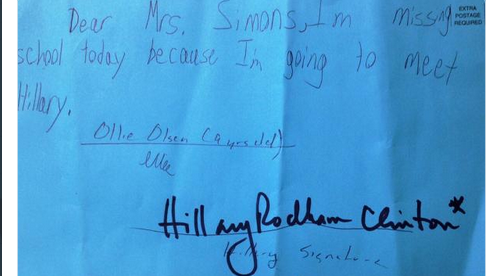 Dear Mrs. Simons, I'm missing
EXTRA
POSTAGE
REQUIRED
school today because I'm going to meet
Hillary.
Ollie Olsen
Hillary Rodham Clinton*
Hillary Signature